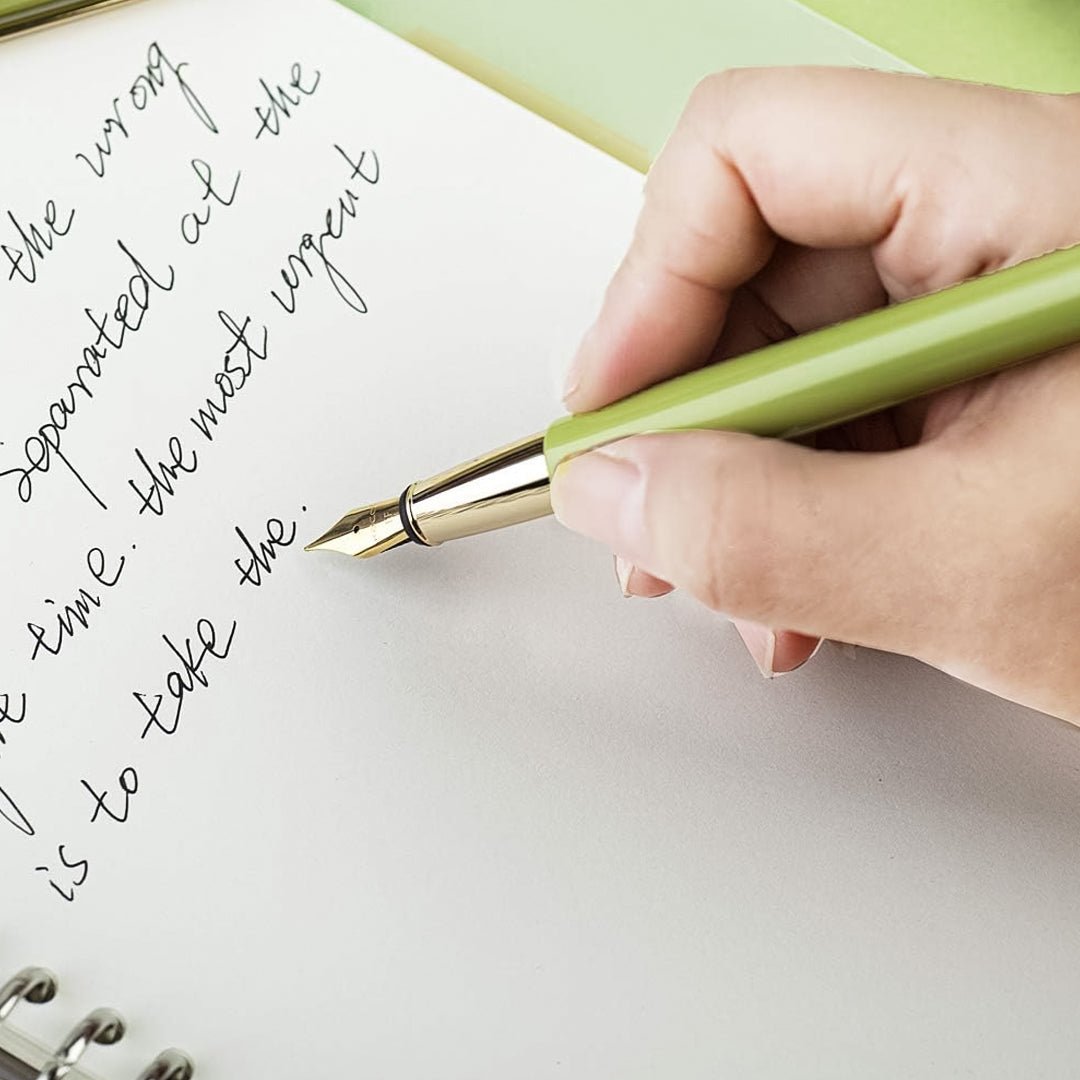 the wrong
separated at the
time. the most urgent
is to take the.